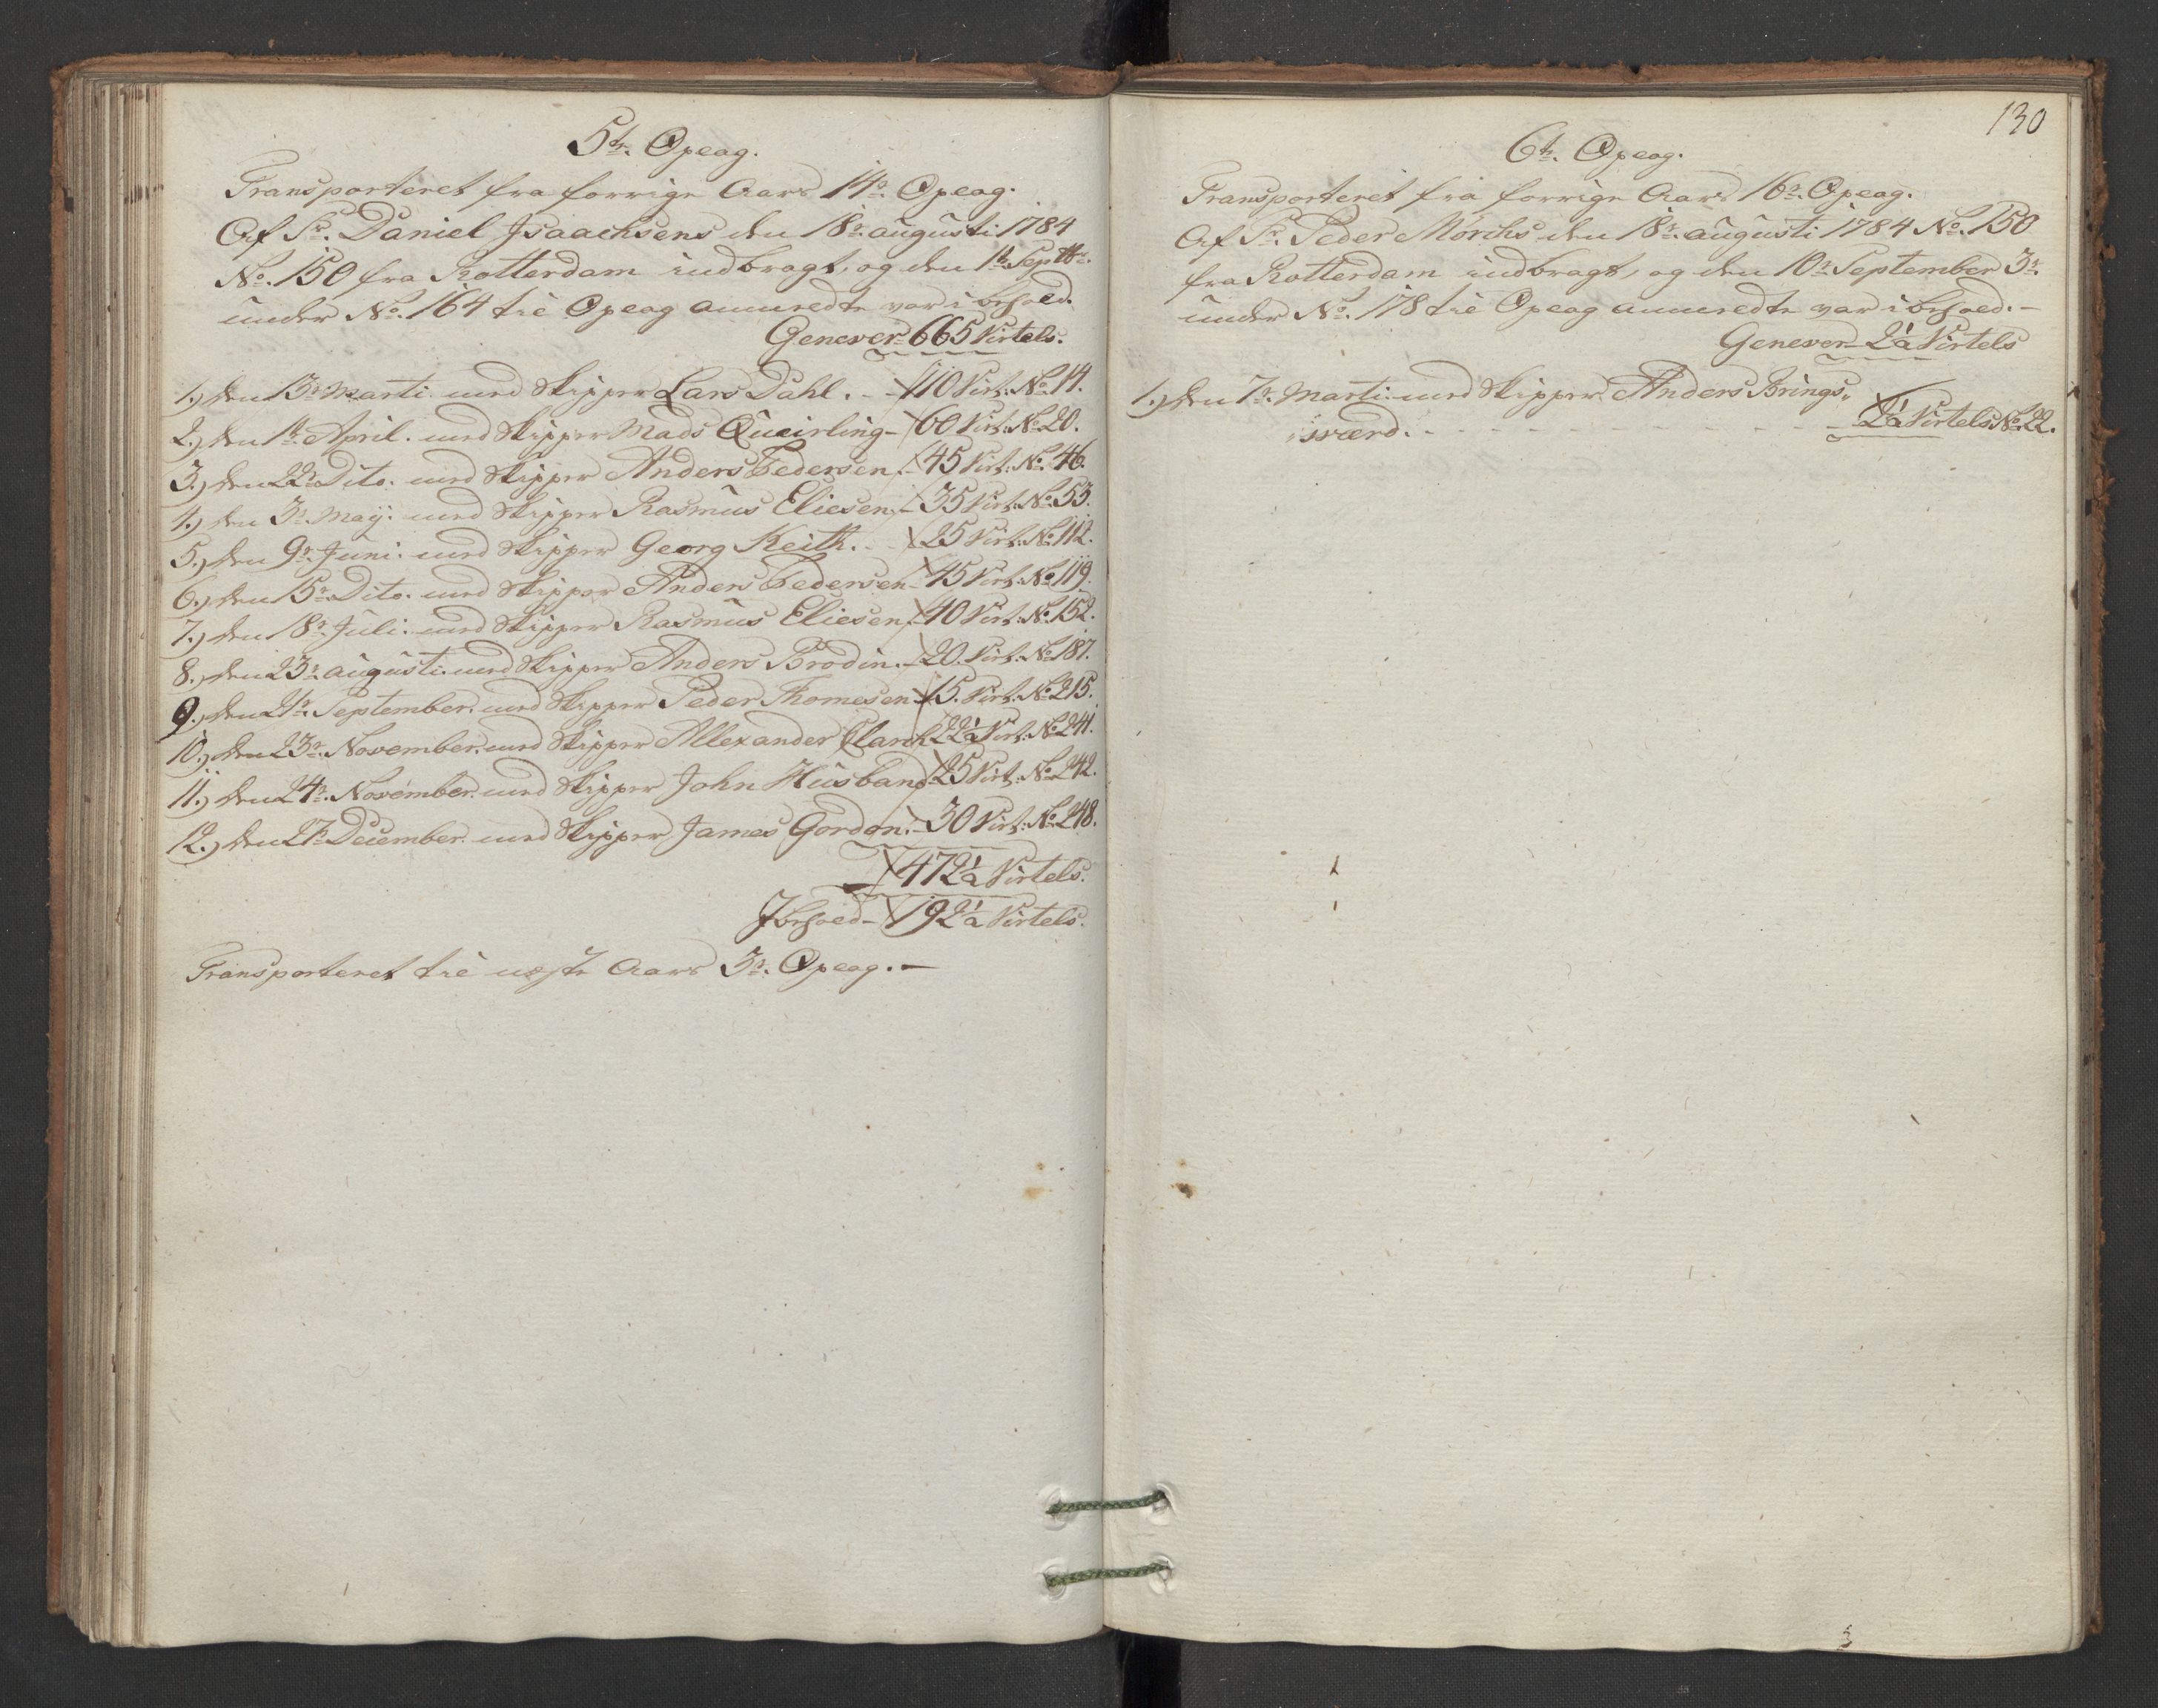 5te. Oplag.
Transporteret fra forrige Aars 14de. Oplag.
Af Sr. Daniel Isaachsens den 18de. augusti 1784
No. 150 fra Rotterdam indbragt, og den 1te. Septbr.
under No. 164 til Oplag anmeldte var i behold.
Genever 665 Virtels.
1.) den 13de. Marti. med Skipper Lars Dahl. - 110 Virt: No. 14.
2.) den 1te. April. med Skipper Mads Queirling - 60 Virt: No. 20.
3.) den 22de. Dito. med Skipper Anders Pedersen. - 45 Virt: No. 46.
4.) den 3de. Maÿ. med Skipper Rasmus Eliesen. - 35 Virt: No. 53.
5.) den 9de. Juni. med Skipper Georg Keith. - 25 Virt: No. 112.
6.) den 15de. Dito. med Skipper Anders Pedersen - 45 Virt: No. 119.
7.) den 18de. Juli. med Skipper Rasmus Eliesen. - 40 Virt: No. 152.
8.) den 23de. augusti. med Skipper Anders Brodin. - 20. Virt: No. 187.
9.) den 21de. September. med Skipper Peder Thomesen - 15. Virt: No. 215.
10.) den 23de. November. med Skipper Allexander Clarch 22½ Virt: No. 241.
11.) den 24de. November. med Skipper John Husband 25 Virt: No. 242.
12.) den 27de December. med Skipper James Gordon. - 30 Virt: No. 248.
472½ Virtels.
I behold - 192½ Virtels.
Transporteret til næste Aars 3de. Oplag. -
130
6te. Oplag.
Transporteret fra forrige Aars 16de. Oplag.
Af Sr. Peder Mørchs den 18de. augusti 1784 No. 150
fra Rotterdam indbragt, og den 10de September
under No. 178 til Oplag anmeldte var i behold. -
Genever - 2½ Virtels
1.) den 7de. Marti. med Skipper Anders Brings-
værd. - - - 2½ Virtels No. 22.